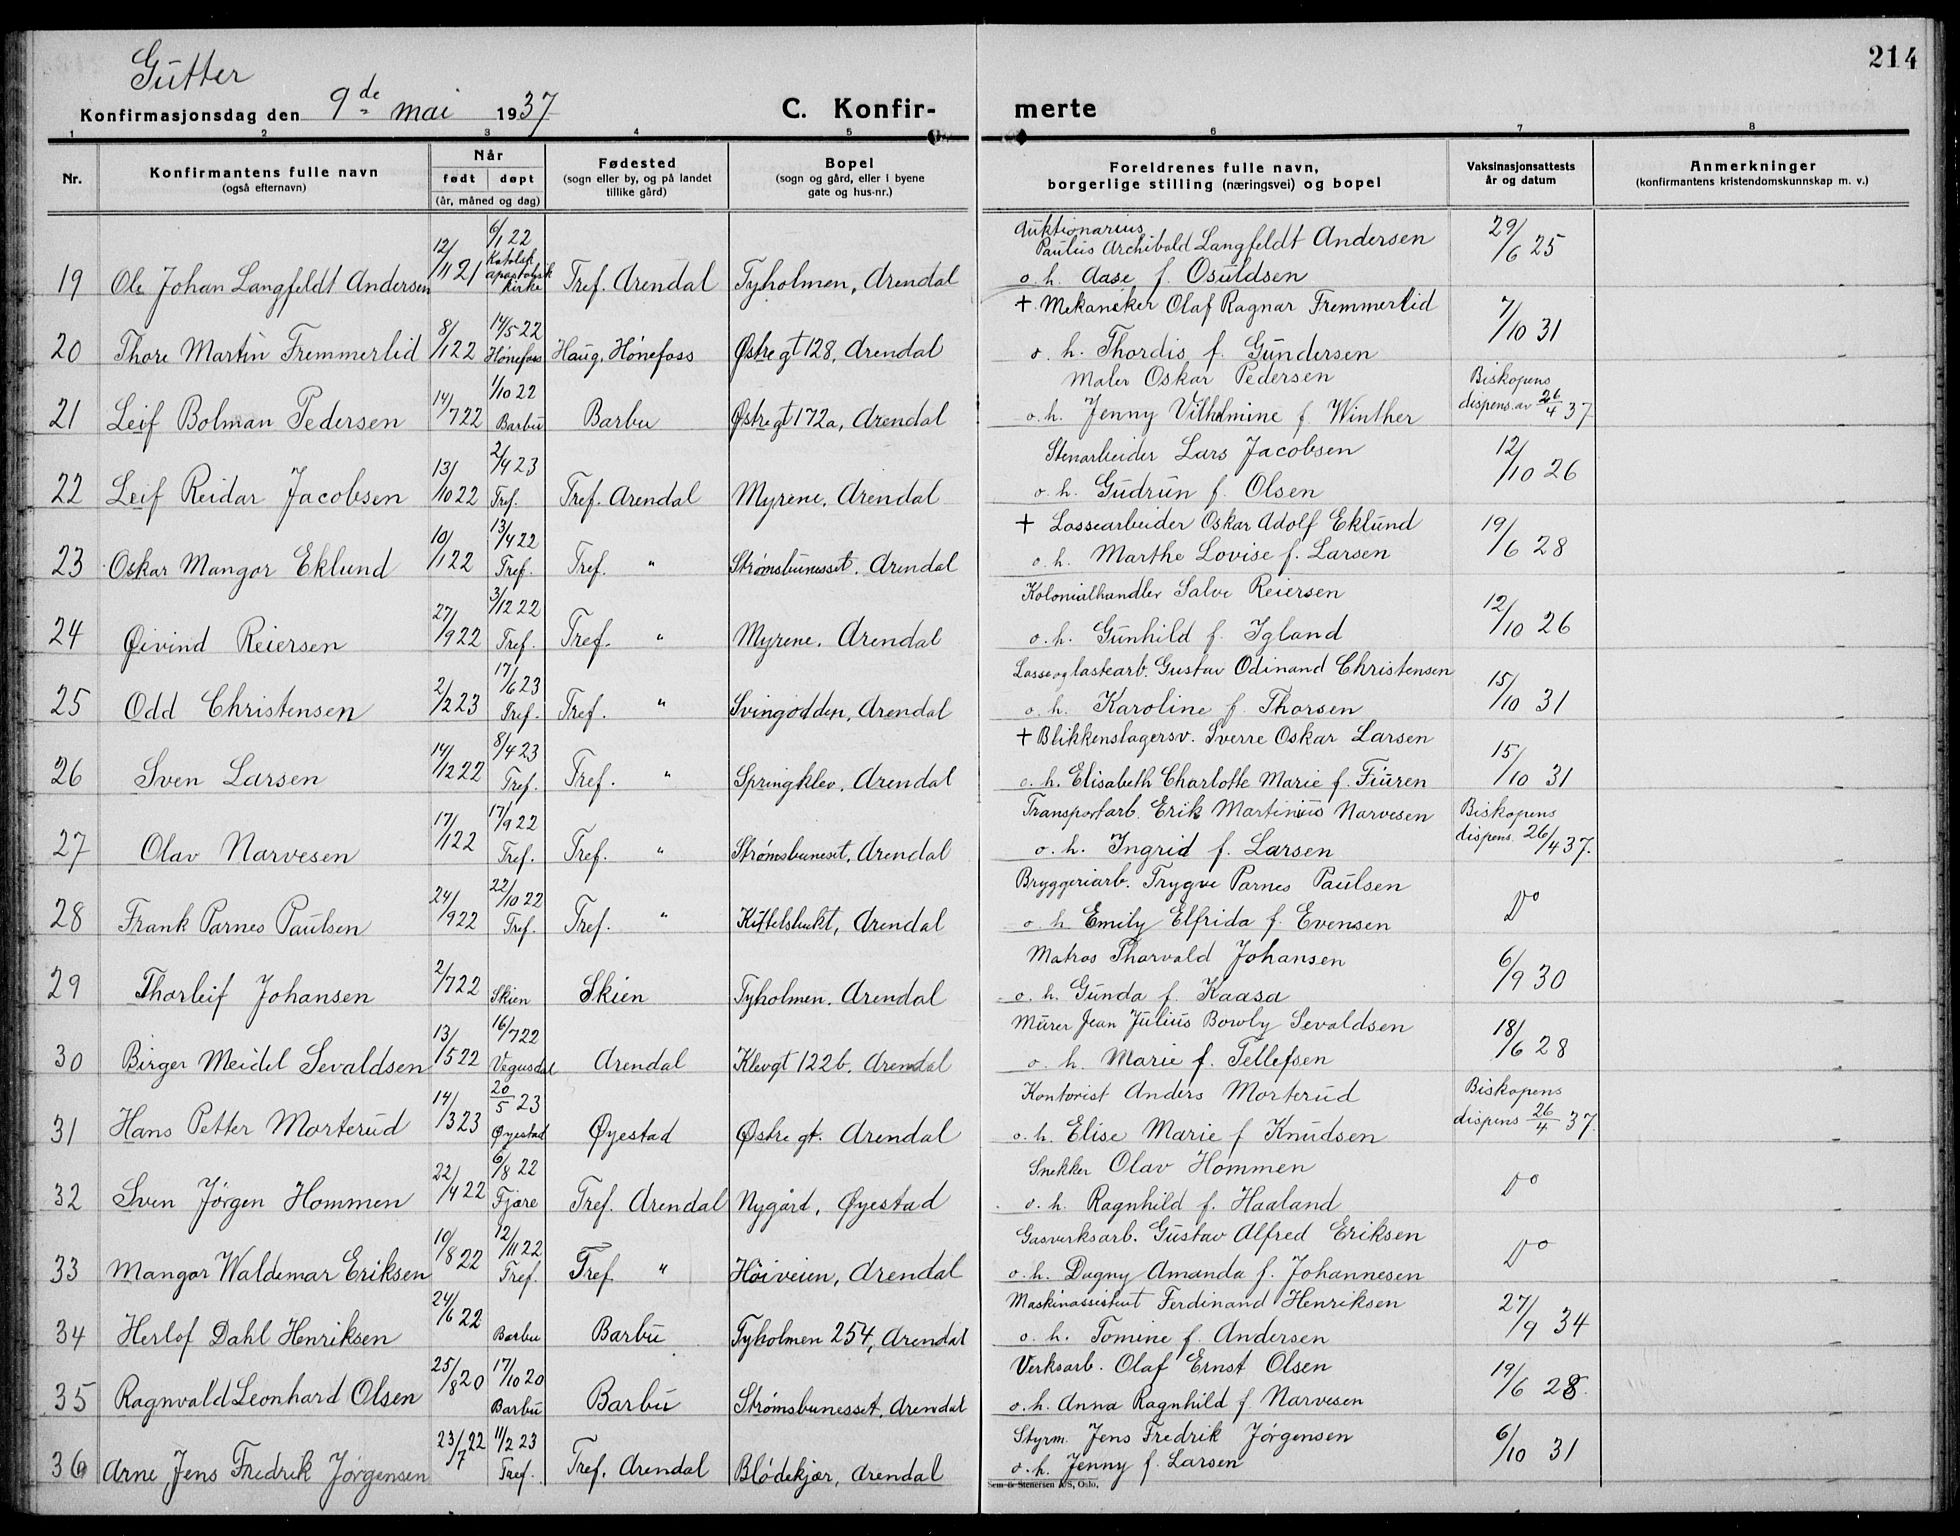 214
Gutter
Konfirmasjonsdag den 9de mai 1937
C. Konfir- merte
1 2 3 4 5 6 7 8
Nr. Konfirmantens fulle navn (også efternavn) Når født døpt (år, måned og dag) Fødested (sogn eller by, og på landet tillike gård) Bopel (sogn og gård, eller i byene gate og hus-nr.) Foreldrenes fulle navn, borgerlige stilling (næringsvei) og bopel Vaksinasjonsattests år og datum Anmerkninger (konfirmantens kristendomskunnskap m. v.)
19 Ole Johan Langfeldt Andersen 12/11 21 6/1 22 Katolsk apostolisk kirke Tref. Arendal Tyholmen, Arendal Auktionarius Paulus Archibald Langfeldt Andersen o. h. Aase f. Osuldsen 29/6 25
20 Thore Martin Fremmerlid 8/1 22 14/5 22 Hønefoss Haug, Hønefoss Østregt 128, Arendal + Mekaniker Olaf Ragnar Fremmerlid o. h. Thordis f. Gundersen 7/10 31
21 Leif Bolman Pedersen 14/7 22 1/10 22 Barbu Barbu Østregt 172a, Arendal Maler Oskar Pedersen o. h. Jenny Vilhelmine f. Winther Biskopens dispens. av 26/4 37
22 Leif Reidar Jacobsen 13/10 22 2/4 23 Tref. Tref. Arendal Myrene, Arendal Stenarbeider Lars Jacobsen o. h. Gudrun f. Olsen 12/10 26
23 Oskar Mangor Eklund 10/1 22 13/4 22 Tref. Tref. " Strømsbunesset, Arendal + Lossearbeider Oskar Adolf Eklund o. h. Marthe Lovise f. Larsen 19/6 28
24 Øivind Reiersen 27/9 22 3/12 22 Tref. Tref. " Myrene, Arendal Kolonialhandler Salve Reiersen o. h. Gunhild f. Igland 12/10 26
25 Odd Christensen 2/2 23 17/6 23 Tref. Tref. " Svinodden, Arendal Losse og lastearb. Gustav Odinand Christensen o. h. Karoline f. Thorsen 15/10 31
26 Sven Larsen 14/12 22 8/4 23 Tref. Tref. " Springklev, Arendal + Blikkenslagersv. Sverre Oskar Larsen o. h. Elisabeth Charlotte Marie f. Fiuren 15/10 31
27 Olav Narvesen 17/1 22 17/9 22 Tref. Tref. " Strømsbuneset, Arendal Transportarb. Erik Martinius Narvesen o. h. Ingrid f. Larsen Biskopens dispens. 26/4 37.
28 Frank Parnes Paulsen 24/9 22 22/10 22 Tref. Tref. " Kittelsbukt, Arendal Bryggeriarb. Trygve Parnes Paulsen o. h. Emily Elfrida f. Evensen Do
29 Thorleif Johansen 2/7 22 Skien Skien Tyholmen. Arendal Matros Thorvald Johansen o. h. Gunda f. Kaasa 6/9 30
30 Birger Meidel Sevaldsen 13/5 22 16/7 22 Vegusdal Arendal Klevgt 122b. Arendal Murer Jean Julius Bowly Sevaldsen o. h. Marie f. Tellefsen 18/6 28
31 Hans Petter Morterud 14/3 23 20/5 23 Øyestad Øyestad Østre gt. Arendal Kontorist Anders Morterud o. h. Elise Marie f. Knudsen Biskopens dispens 26/4 37.
32 Sven Jørgen Hommen 22/4 22 6/8 22 Fjære Tref. Arendal Nygård, Øyestad Snekker Olav Hommen o. h. Ragnhild f. Haaland Do
33 Mangor Waldemar Eriksen 19/8 22 12/11 22 Tref. Tref. " Høiveien, Arendal Gasverksarb. Gustav Alfred Eriksen o. h. Dagny Amanda f. Johannesen Do
34 Herlof Dahl Henriksen 24/6 22 Barbu Barbu Tyholmen 254, Arendal Maskinassistent Ferdinand Henriksen o. h. Tomine f. Andersen 27/9 34
35 Ragnvald Leonhard Olsen 25/8 20 17/10 20 Barbu Barbu Strømsbunesset, Arendal Verksarb. Olaf Ernst Olsen o. h. Anna Ragnhild f. Narvesen 19/6 28.
36 Arne Jens Fredrik Jørgensen 23/7 22 11/2 23 Tref. Tref. Arendal Blødekjær, Arendal Styrm. Jens Fredrik Jørgensen o. h. Jenny f. Larsen 6/10 31
Sem & Stenersen A/S, Oslo.